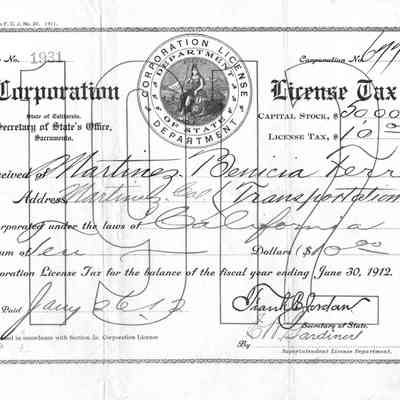 F. C. J. No. 20. 1911.
No. 1931
Corporation No. 699
CORPORATION LICENSE DEPARTMENT
DEPARTMENT OF STATE
Corporation License Tax
State of California.
Secretary of State's Office,
Sacramento.
CAPITAL STOCK, $50,00
LICENSE TAX, $10
Received of Martinez Benicia Ferr
Address Martinez, Cal. (Transportation
corporated under the laws of California
um of Ten Dollars ($10.00
poration License Tax for the balance of the fiscal year ending June 30, 1912.
Paid Jany 26 12
Frank C Jordan
Secretary of State.
ed in accordance with Section 3a, Corporation License
By Gardiner
Superintendent License Department.
1912